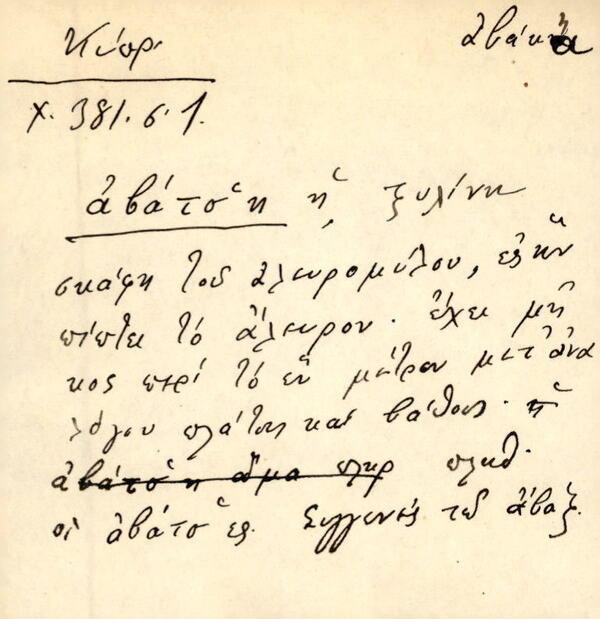 Κύπρ.
ἀβάκα
Χ. 381. σ. 1.
ἀβάτσ̌η ἡ, ξυλίνη
σκάφη τοῦ ἀλευρομύλου, εἰς ἣν
πίπτει τὸ ἄλευρον. ἔχει μῆ
κος περὶ τὸ ἓν μέτρον μετ᾽ ἀνα
λόγου πλάτους καὶ βάθους.
ἀβάτσ̌η ἅμα πληρ πληθ.
οἱ ἀβάτσ̌ες. Συγγενὲς τοῦ ἄβαξ.